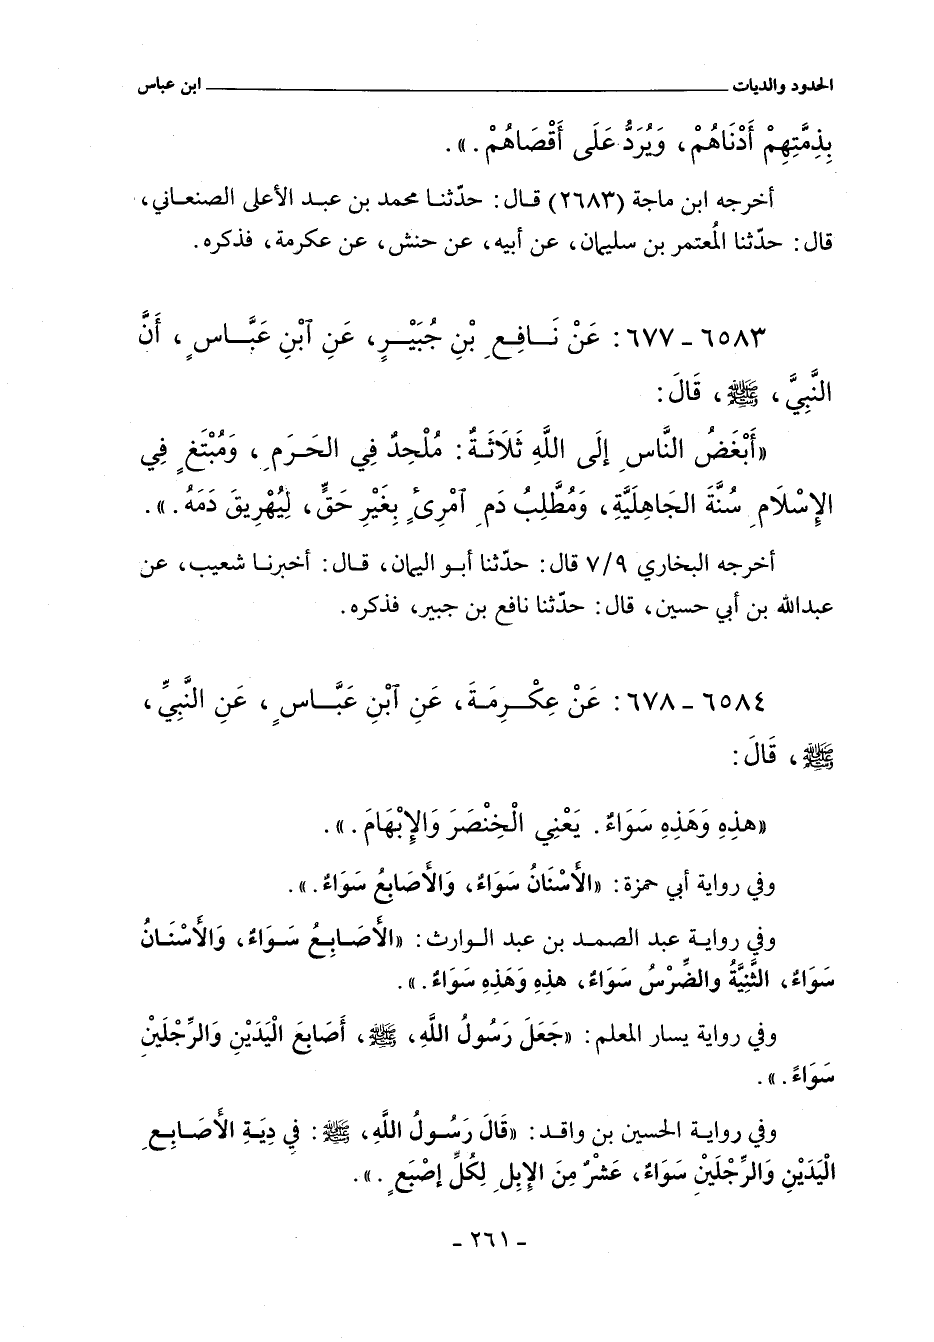 الحدود والديات ــــــــــــــــــــ ابن عباس
بِذِمَّتِهِمْ أَدْنَاهُمْ، وَيُرَدُّ عَلَى أَقْصَاهُمْ.».
أخرجه ابن ماجة (٢٦٨٣) قال: حدّثنا محمد بن عبد الأعلى الصنعاني،
قال: حدّثنا المُعتمر بن سليمان، عن أبيه، عن حنش، عن عكرمة، فذكره.
٦٥٨٣ - ٦٧٧: عَنْ نَافِعِ بْنِ جُبَيْرٍ، عَنِ ٱبْنِ عَبَّاسٍ، أَنَّ
النَّبِيَّ، ﷺ، قَالَ:
«أَبْغَضُ النَّاسِ إِلَى اللَّهِ ثَلَاثَةٌ: مُلْحِدٌ فِي الحَرَمِ، وَمُبْتَغٍ فِي
الإِسْلَامِ سُنَّةَ الجَاهِلِيَّةِ، وَمُطَّلِبُ دَمِ ٱمْرِئٍ بِغَيْرِ حَقٍّ، لِيُهْرِيقَ دَمَهُ.».
أخرجه البخاري ٧/٩ قال: حدّثنا أبو اليمان، قال: أخبرنا شعيب، عن
عبدالله بن أبي حسين، قال: حدّثنا نافع بن جبير، فذكره.
٦٥٨٤ - ٦٧٨: عَنْ عِكْرِمَةَ، عَنِ ٱبْنِ عَبَّاسٍ، عَنِ النَّبِيِّ،
ﷺ، قَالَ:
«هذِهِ وَهَذِهِ سَوَاءٌ. يَعْنِي الْخِنْصَرَ وَالإِبْهَامَ.».
وفي رواية أبي حمزة: «الأَسْنَانُ سَوَاءٌ، وَالأَصَابِعُ سَوَاءٌ.».
وفي رواية عبد الصمد بن عبد الوارث: «الأَصَابِعُ سَوَاءٌ، وَالأَسْنَانُ
سَوَاءٌ، الثَّنِيَّةُ والضِّرْسُ سَوَاءٌ، هذِهِ وَهَذِهِ سَوَاءٌ.».
وفي رواية يسار المعلم: «جَعَلَ رَسُولُ اللَّهِ، ﷺ، أَصَابِعَ الْيَدَيْنِ وَالرِّجْلَيْنِ
سَوَاءً.».
وفي رواية الحسين بن واقد: «قَالَ رَسُولُ اللَّهِ، ﷺ: فِي دِيَةِ الأَصَابِعِ
الْيَدَيْنِ وَالرِّجْلَيْنِ سَوَاءٌ، عَشْرٌ مِنَ الإِبِلِ لِكُلِّ إِصْبَعٍ.».
- ٢٦١ -